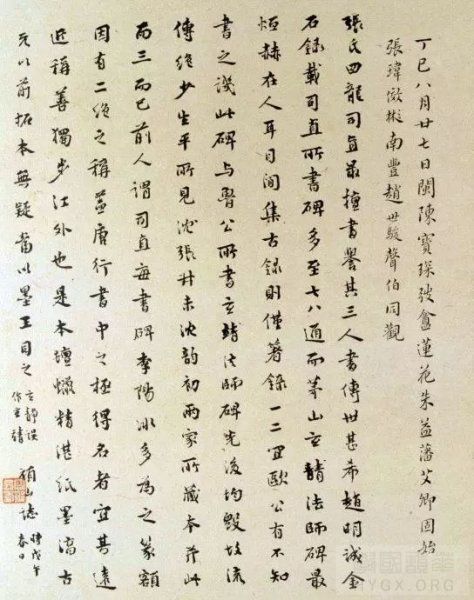 丁巳八月廿七日閩陳寶琛弢盦蓮花朱益藩艾卿固始
張瑋傚彬南豐趙世駿聲伯同觀
張氏四龍司直最擅書譽其三人書傳世甚希趙明誠金
石錄載司直所書碑多至七八通而茅山玄靖法師碑最
烜赫在人耳目間集古錄則僅著錄一二宜歐公有不知
書之譏此碑與魯公所書玄靖法師碑先後均毀故流
傳絕少生平所見沈張井未沈韵初兩家所藏本并此
而三而已前人謂司直每書碑李陽冰多為之篆額
因有二絕之稱蓋唐行書中之極得名者宜其遠
近稱善獨步江外也是本壇蠟精湛紙墨濡古
元以前拓本無疑當以墨王目之
玄靜誤
作玄靖
碩山誌
時戊午
春日
YGX.ORG